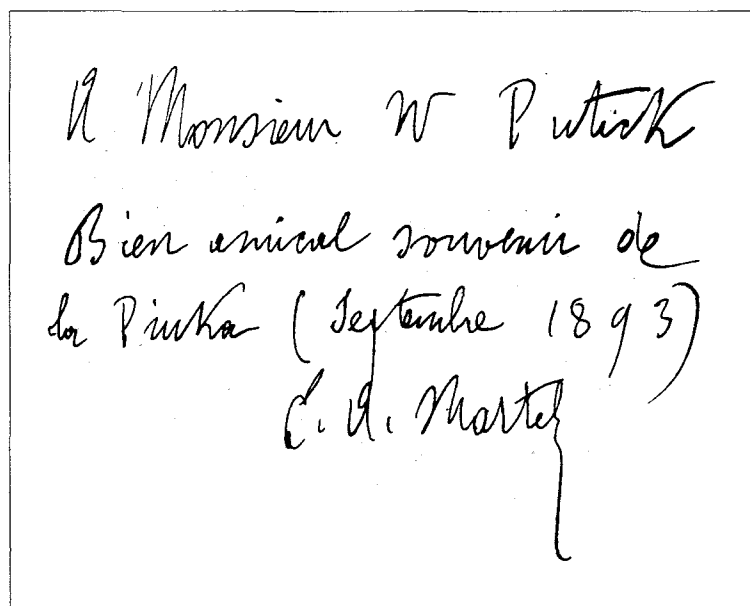 A Monsieur W Putick
Bien amical souvenir de
la Piuka (Septembre 1893)
E. A. Martel